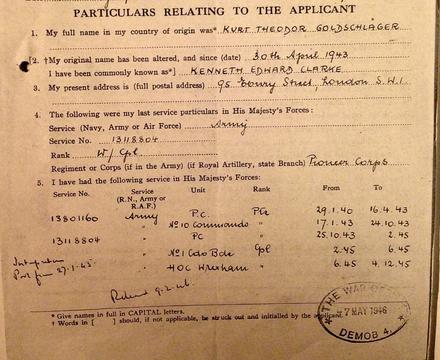 PARTICULARS RELATING TO THE APPLICANT
1. My full name in my country of origin was* KURT THEODOR GOLDSCHLAGER
[2. †My original name has been altered, and since (date) 30th April 1943
I have been commonly known as*] KENNETH EDWARD CLARKE
3. My present address is (full postal address) 95 Ebury Street, London S.W.1
4. The following were my last service particulars in His Majesty's Forces:
Service (Navy, Army or Air Force) Army
Service No. 13118804
Rank W/Cpl.
Regiment or Corps (if in the Army) (if Royal Artillery, state Branch) Pioneer Corps
5. I have had the following service in His Majesty's Forces:
Service No. Service (R.N., Army or R.A.F.) Unit Rank From To
13801160 Army P.C. Pte 29.1.40 16.4.43
" No 10 Commando " 17.1.43 24.10.43
13118804 " PC " 25.10.43 2.45
" No 1 Cdo Bde Cpl 2.45 6.45
" HOC Wrexham " 6.45 4.12.45
Interpreter
from 27.1.45
* Give names in full in CAPITAL letters.
† Words in [ ] should, if not applicable, be struck out and initialled by the
THE WAR
7 MAY 1946
DEMOB 4.